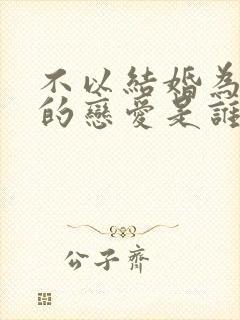 不以結婚為
的戀愛是誰
公子齊